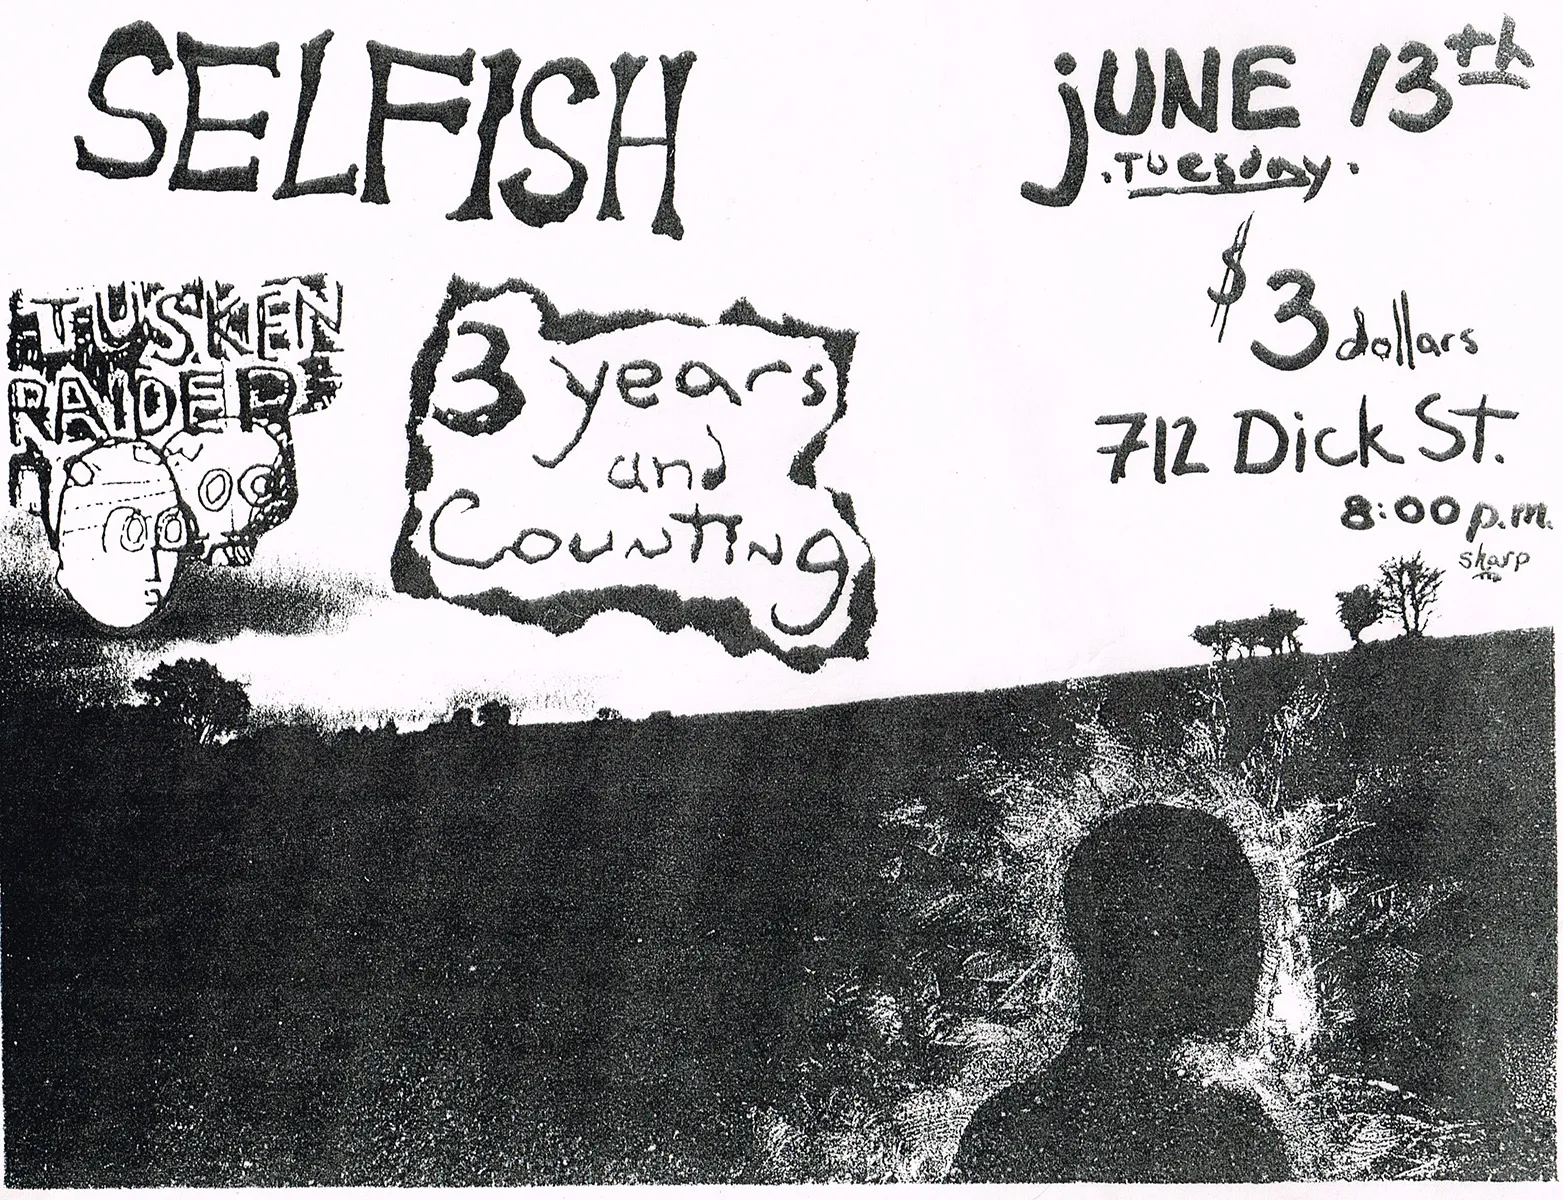 SELFISH
jUNE 13th
.Tuesday.
$3 dollars
712 Dick St.
8:00 p.m.
sharp
TUSKEN
RAIDERS
3 years
and
Counting